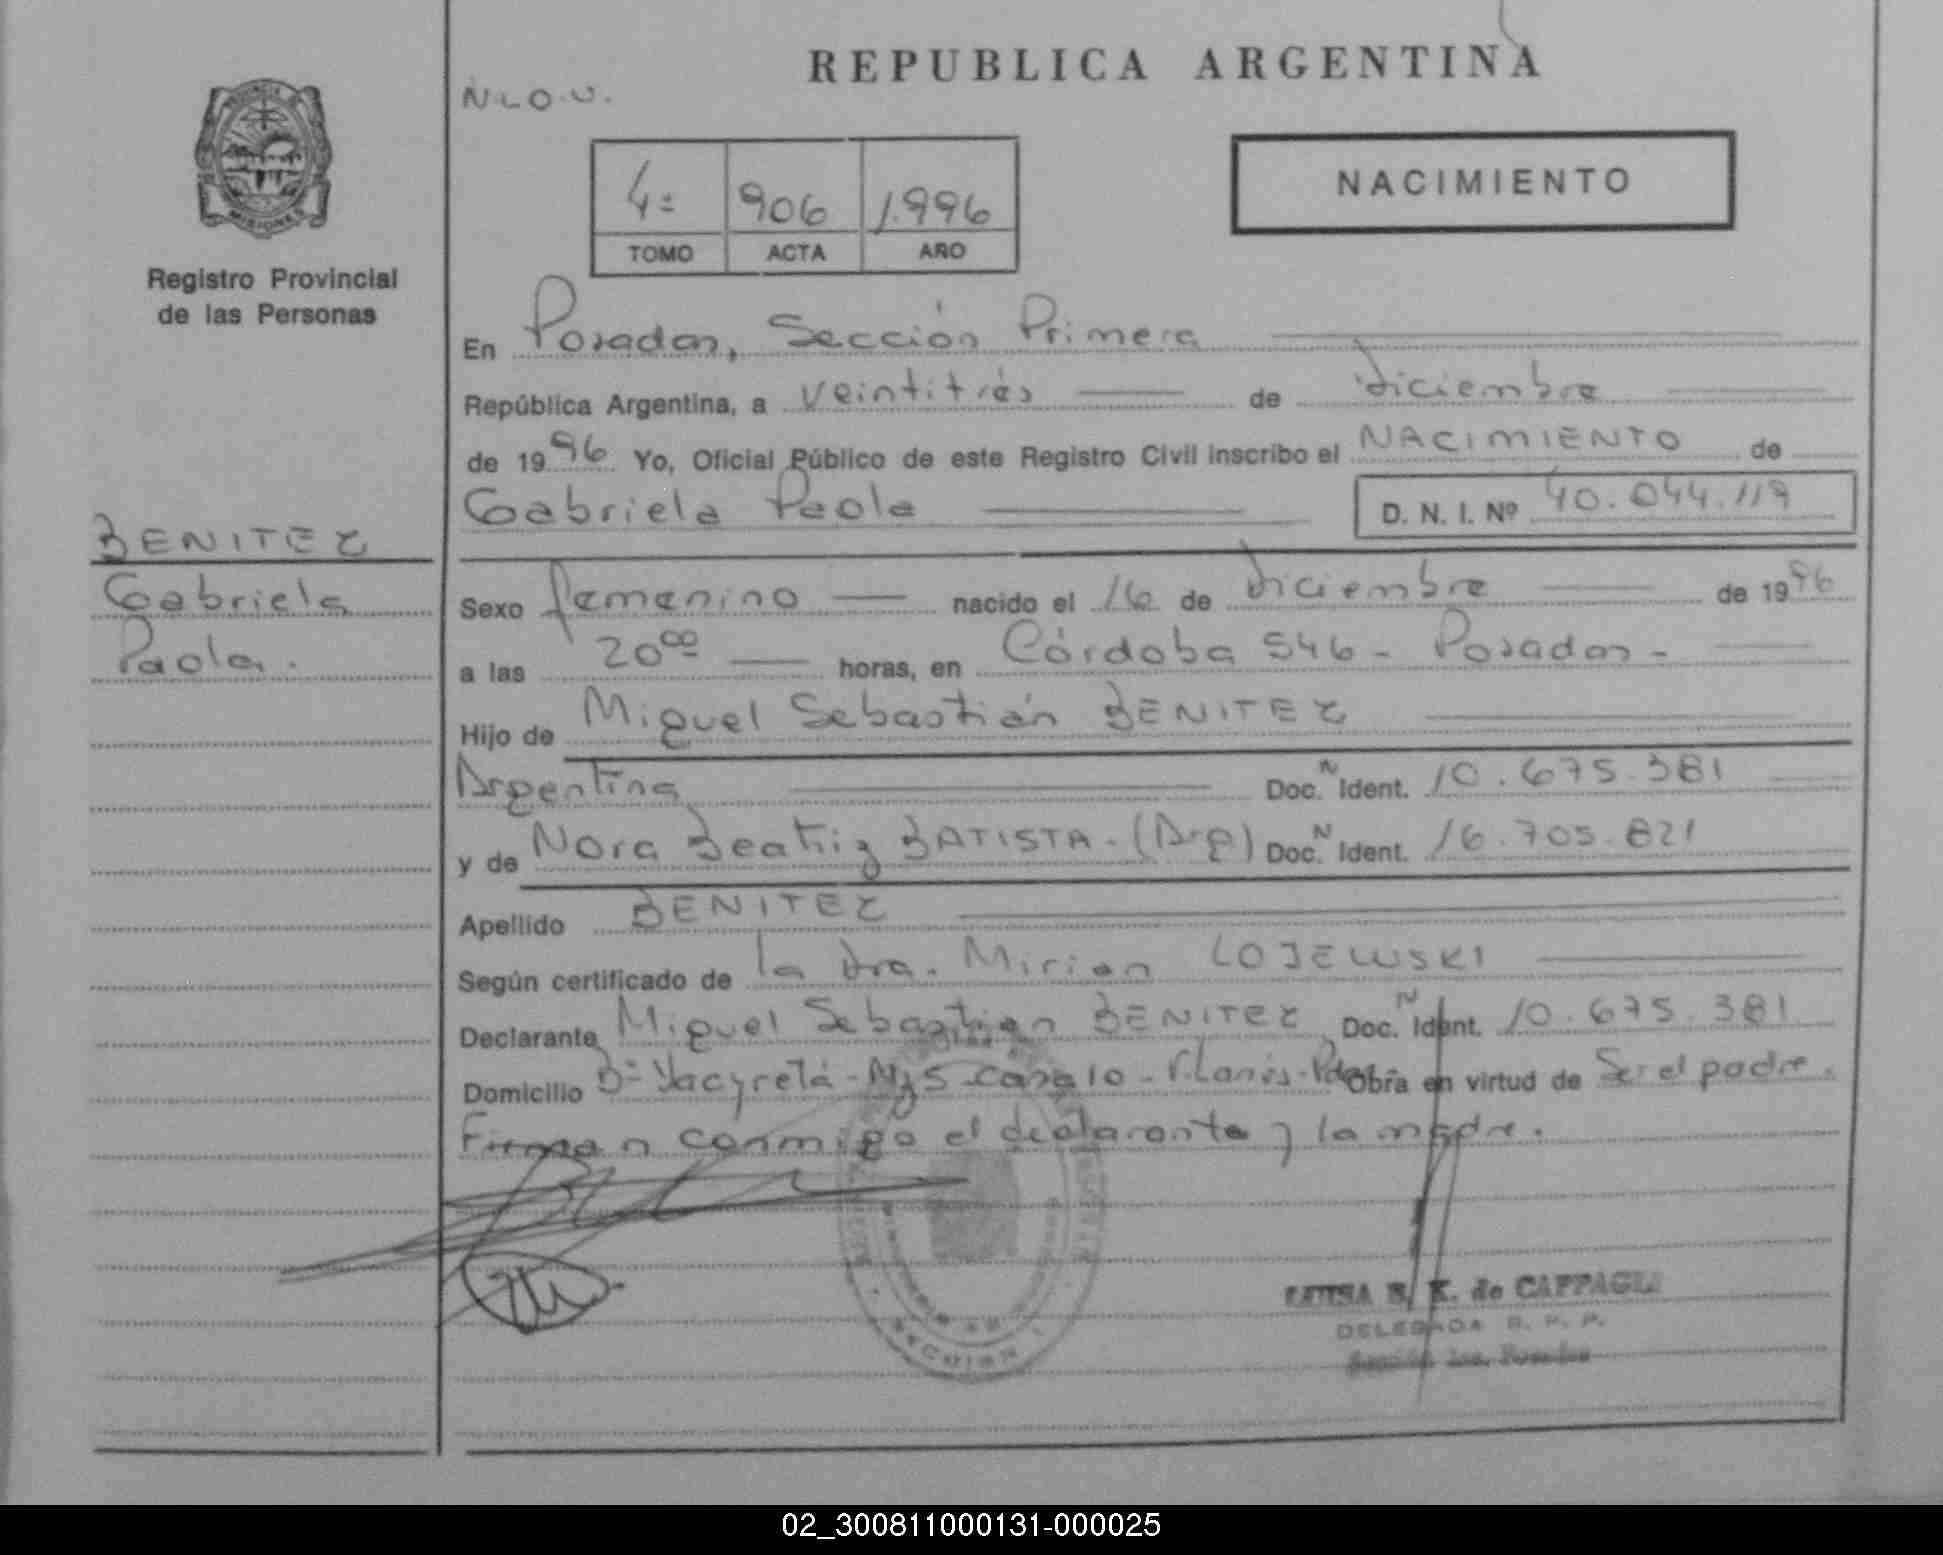 REPUBLICA ARGENTINA
N.L.O.U.
NACIMIENTO
4º 906 1.996
TOMO ACTA AÑO
MISIONES
Registro Provincial
de las Personas
En Posadas, Sección Primera
República Argentina, a veintitrés de diciembre
de 1996 Yo, Oficial Público de este Registro Civil inscribo el NACIMIENTO de
Gabriela Paola D. N. I. Nº 40.044.119
BENITEZ
Gabriela
Paola.
Sexo femenino nacido el 16 de diciembre de 1996
a las 20⁰⁰ horas, en Córdoba 546 - Posadas -
Hijo de Miguel Sebastián BENITEZ
Argentina Doc. N Ident. 10.675.381
y de Nora Beatriz BATISTA - (Arg) Doc. N Ident. 16.705.821
Apellido BENITEZ
Según certificado de la dra. Mirian LOJEWSKI
Declarante Miguel Sebastián BENITEZ Doc. N Ident. 10.675.381
Domicilio Bº Yacyretá - Mz 5 casa 10 - Obra en virtud de Ser el padre.
Firman conmigo el declarante y la madre.
B. K. de CAFFAGLI
DELEGADA R. P. P.
02_300811000131-000025